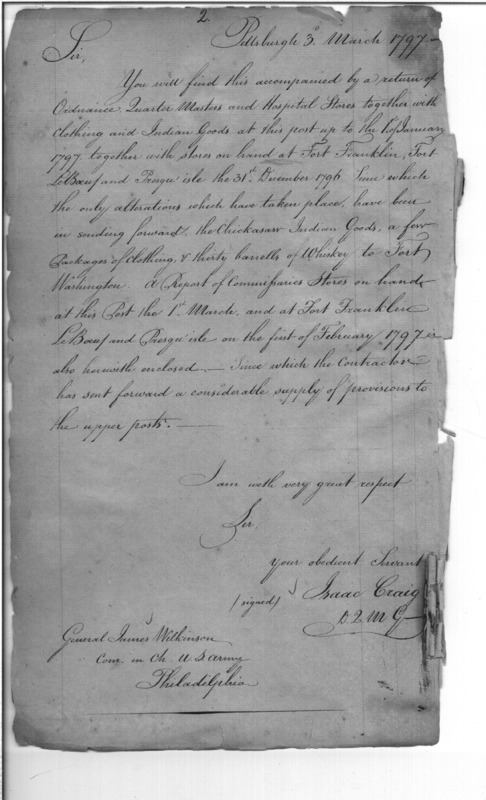 2.
Pittsburgh 3d. March 1797 —
Sir,
You will find this accompanied by a return of
Ordnance, Quarter Masters and Hospital Stores together with
Clothing and Indian Goods at this post up to the 1st January
1797 together with stores on hand at Fort Franklin, Fort
LeBœuf and Presqu'isle the 31st December 1796. Since which
the only alterations which have taken place, have been
in sending forward, the Chickasaw Indian Goods, a few
Packages of Clothing, & thirty barrells of Whiskey to Fort
Washington. A Report of Commissaries Stores on hand
at this Post the 1st March, and at Fort Franklin
LeBœuf and Presqu'isle on the first of February 1797 is
also herewith enclosed. — Since which the Contractor
has sent forward a considerable supply of provisions to
the upper posts. —
I am with very great respect
Sir,
Your obedient Servant
(signed) Isaac Craig
D Q M G
General James Wilkinson
Comg. in Ch. U S army
Philadelphia